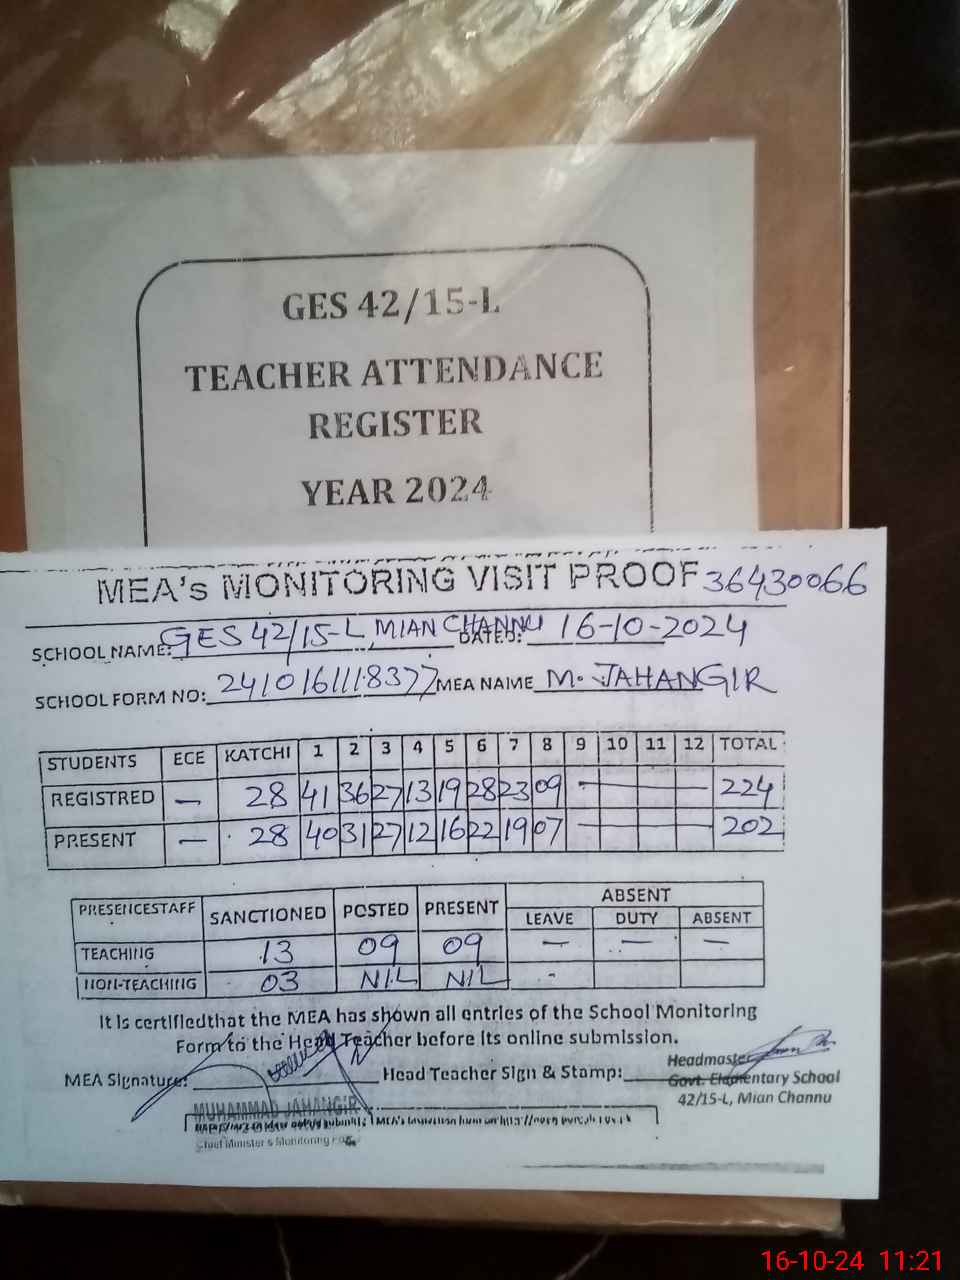 GES 42/15-L
TEACHER ATTENDANCE
REGISTER
YEAR 2024
MEA's MONITORING VISIT PROOF 36430066
SCHOOL NAME: GES 42/15-L MIAN CHANNU DATED: 16-10-2024
SCHOOL FORM NO: 2410161118377 MEA NAME M. JAHANGIR
STUDENTS ECE KATCHI 1 2 3 4 5 6 7 8 9 10 11 12 TOTAL
REGISTRED — 28 41 36 27 13 19 28 23 09 — 224
PRESENT — 28 40 31 27 12 16 22 19 07 — 202
PRESENCESTAFF SANCTIONED POSTED PRESENT ABSENT
LEAVE DUTY ABSENT
TEACHING 13 09 09 — — —
NON-TEACHING 03 NIL NIL -
It is certifiedthat the MEA has shown all entries of the School Monitoring
Form to the Head Teacher before its online submission.
MEA Signature: Head Teacher Sign & Stamp:
Headmaster
Govt. Elementary School
42/15-L, Mian Channu
MUHAMMAD JAHANGIR
Chief Minister's Monitoring
16-10-24 11:21